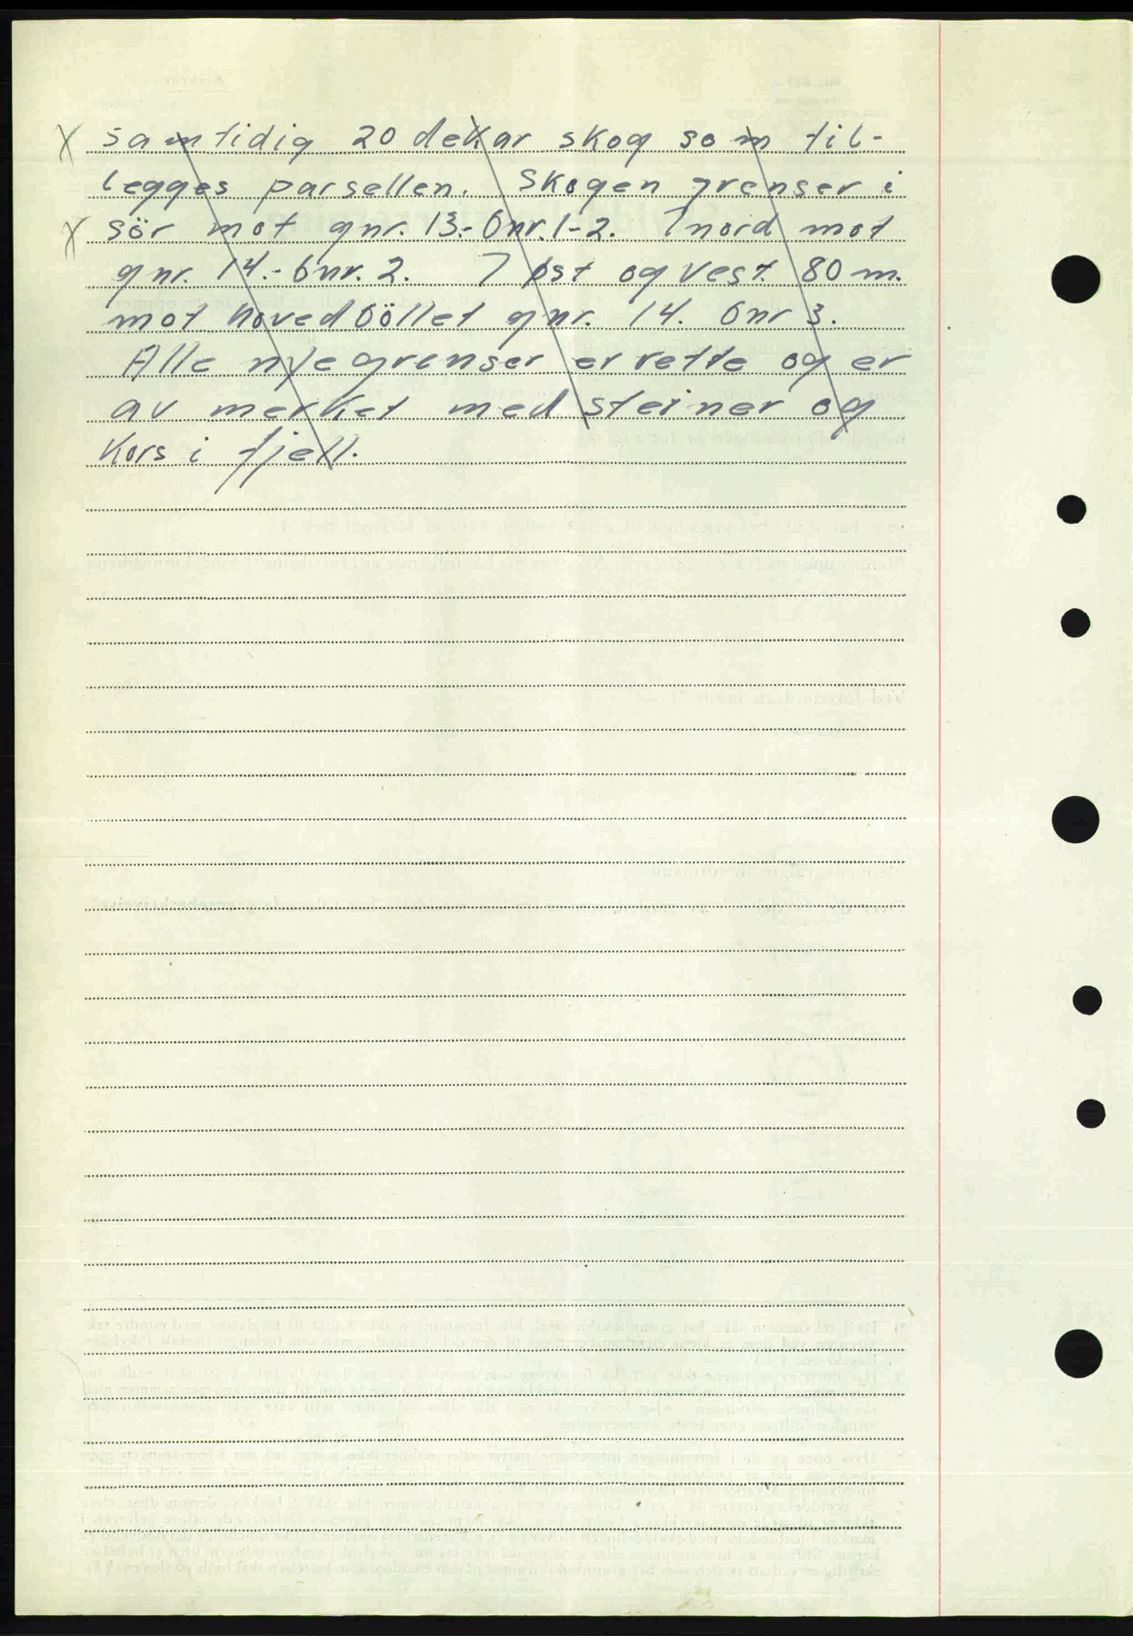 X samtidig 20 dekar skog som til-
legges parsellen. Skogen grenser i
X sör mot gnr. 13.- bnr. 1-2. I nord mot
gnr. 14.- bnr. 2. I øst og vest 80 m.
mot hovedböllet gnr. 14. bnr 3.
Alle nye grenser er rette og er
av merket med steiner og
kors i fjell.